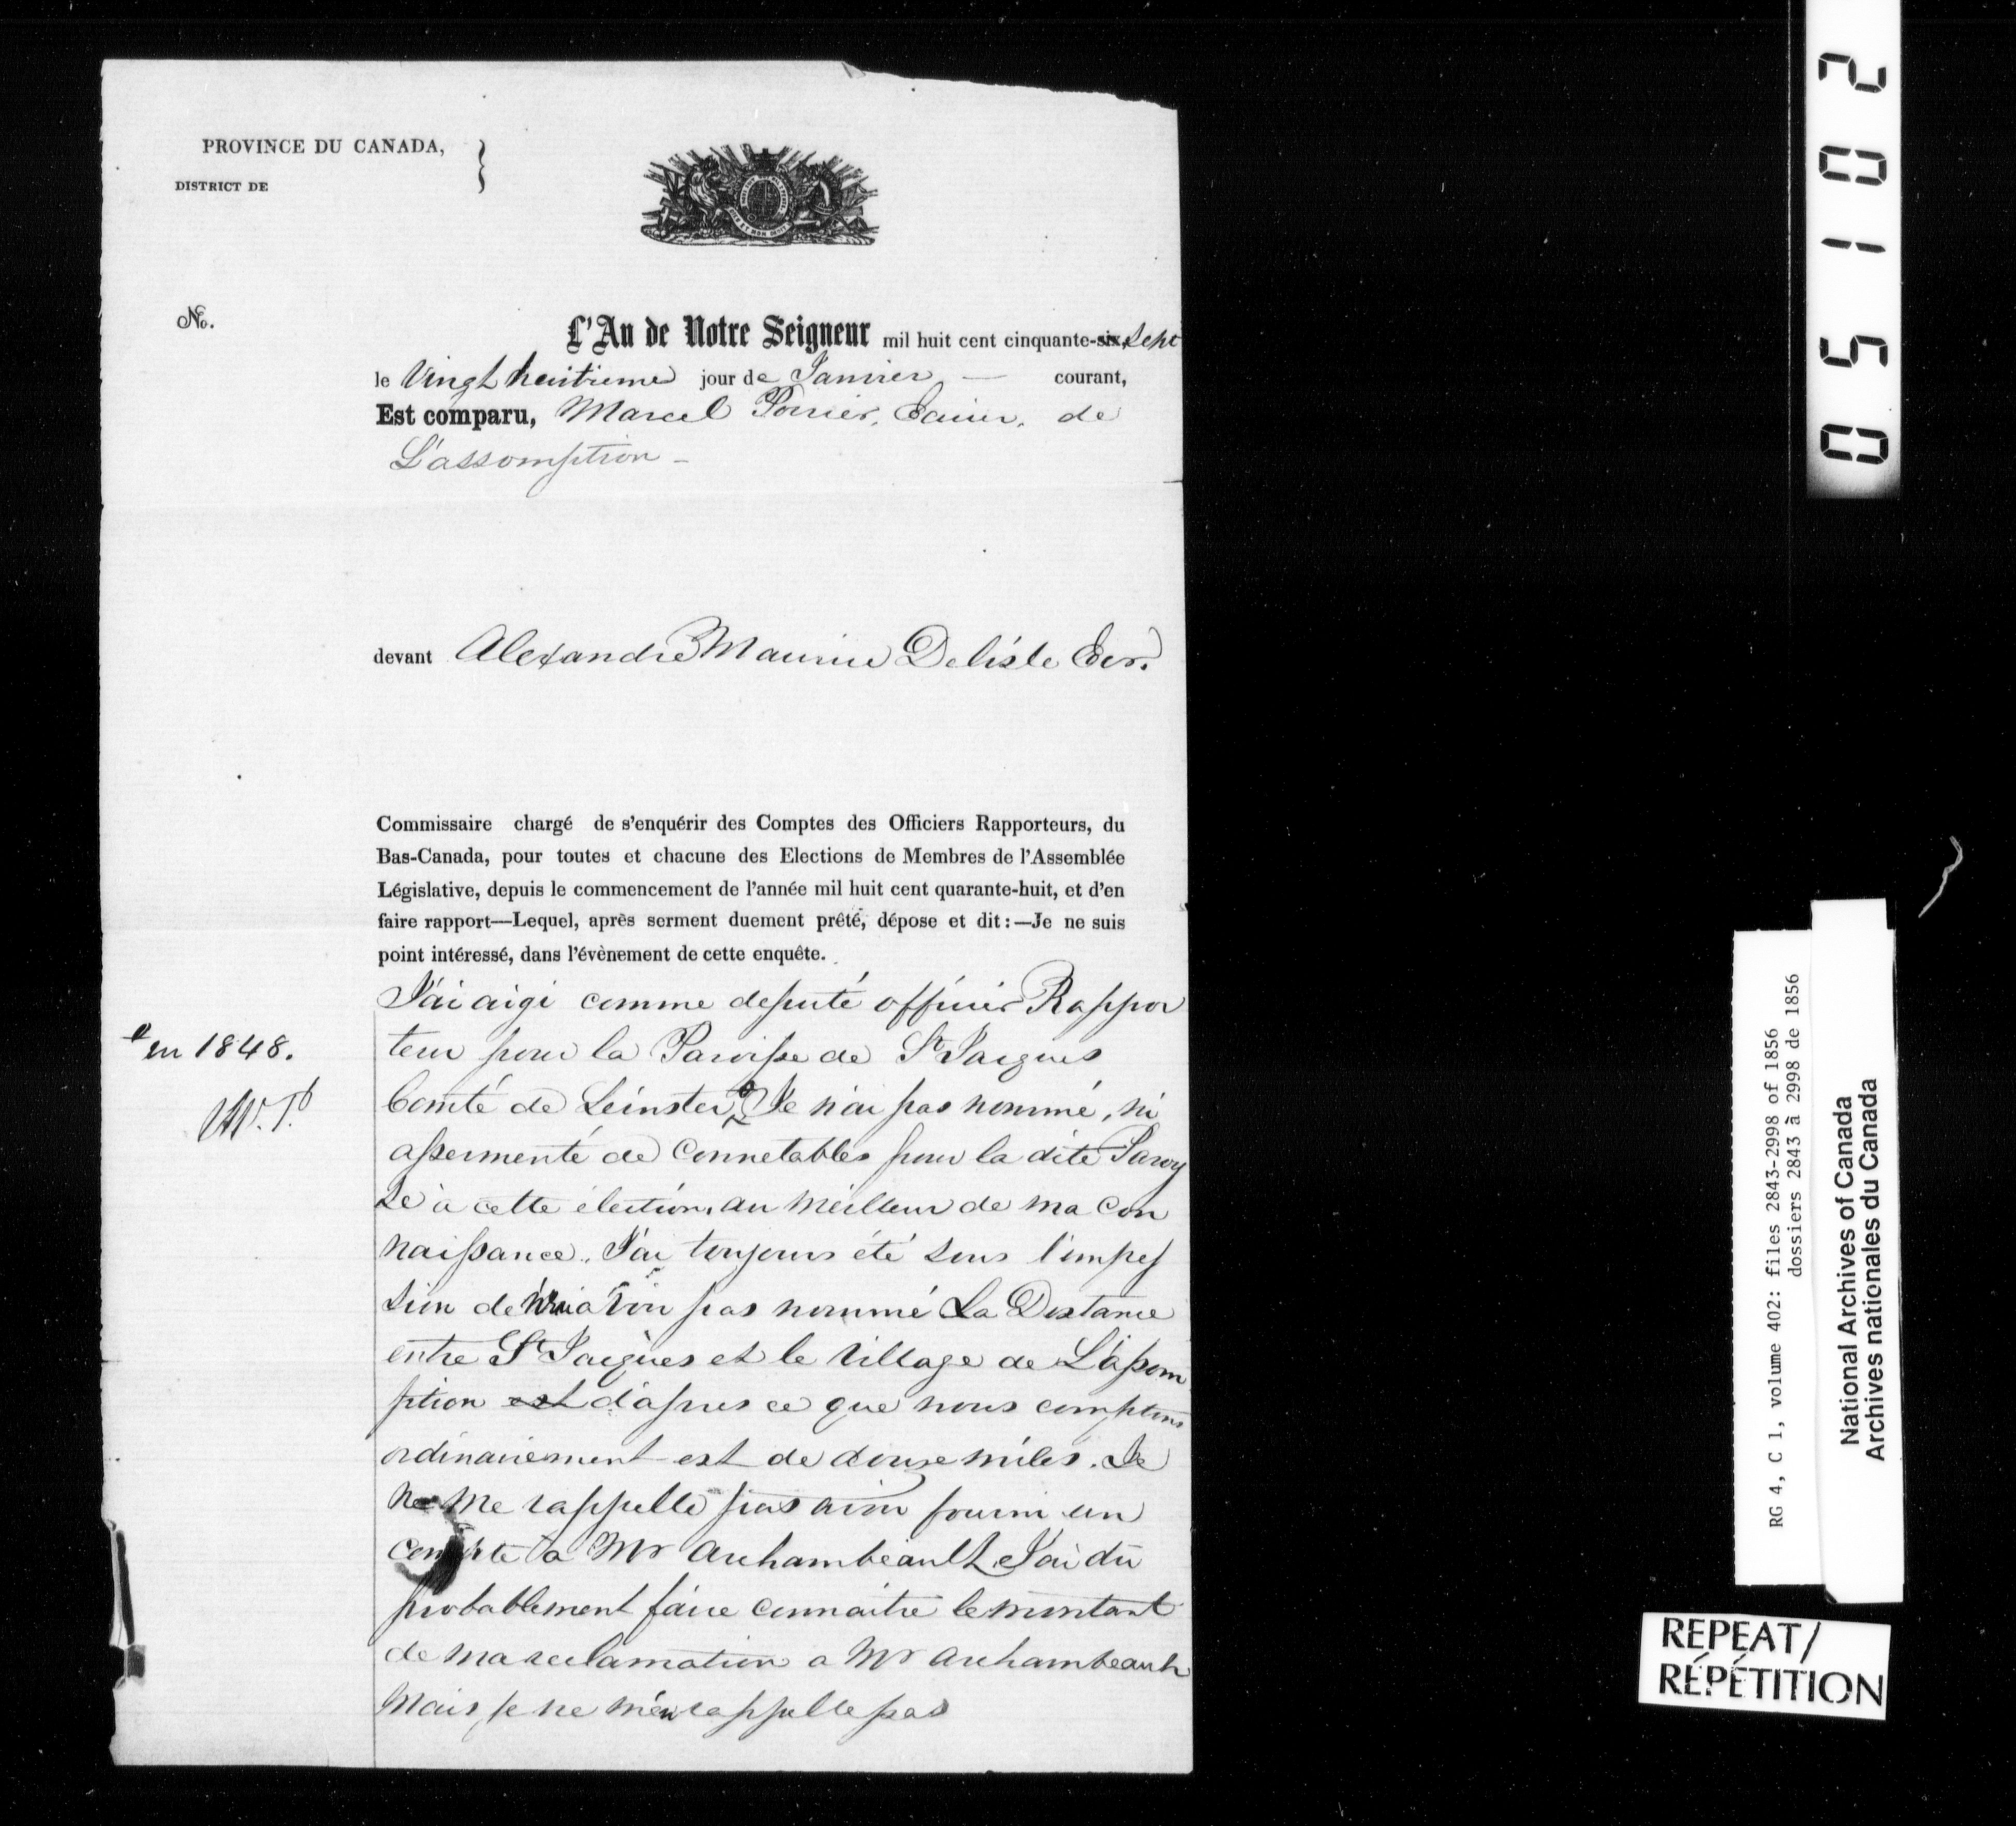 PROVINCE DU CANADA,
DISTRICT DE
No.
L'An de Notre Seigneur mil huit cent cinquante-six, sept
le Vingt huitieme jour de Janvier — courant,
Est comparu, Marcel Poirier, Ecuier, de
L'assomption —
devant Alexandre Maurice Delisle Ecr.
Commissaire chargé de s'enquérir des Comptes des Officiers Rapporteurs, du
Bas-Canada, pour toutes et chacune des Elections de Membres de l'Assemblée
Législative, depuis le commencement de l'année mil huit cent quarante-huit, et d'en
faire rapport—Lequel, après serment duement prêté, dépose et dit:—Je ne suis
point intéressé, dans l'évènement de cette enquête.
J'ai aigi comme deputé officier Rappor
teur pour la Paroisse de St Jacques
en 1848.
M.P.
Comté de Leinster Je n'ai pas nommé, ni
assermenté de Connetables pour la dite Paroy
se à cette élection, au meilleur de ma con
naissance. J'ai toujours été sous l'impres
sion de pas nommé La Distance
entre St Jacques et le village de L'assom
ption est d'apres ce que nous comptons
ordinairement est de douze miles. Je
ne me rappelle pas avoir fourni un
compte a Mr Archambeault J'ai dû
probablement faire connaitre le montant
de ma reclamation a Mr Archambeault
Mais je ne m'en rappelle pas
0 5 1 0 2
RG 4, C 1, volume 402: files 2843-2998 of 1856
dossiers 2843 à 2998 de 1856
National Archives of Canada
Archives nationales du Canada
REPEAT/
RÉPÉTITION